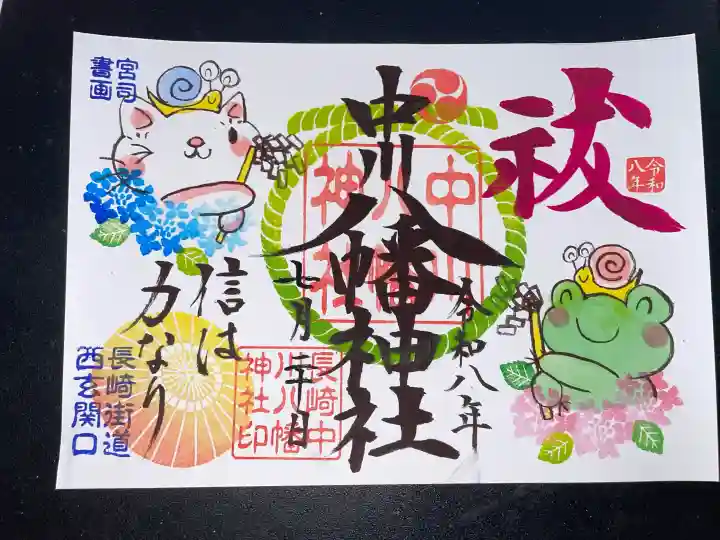 祓
令和
八年
中川八幡神社
令和八年
七月二十日
中川
八幡
神社
長崎中
川八幡
神社印
信は
力なり
宮司
書画
長崎街道
西玄関口